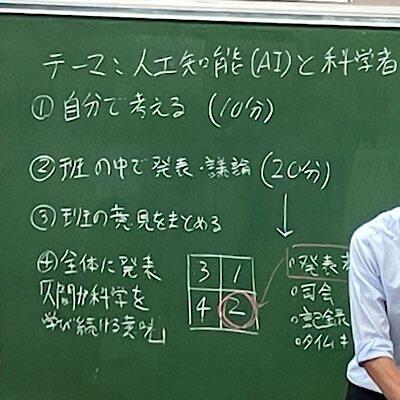 テーマ:人工知能(AI)と科学者
①自分で考える (10分)
②班の中で発表・議論(20分)
③班の意見をまとめる
④全体に発表
人間が科学を
学び続ける意味」
3 1
4 2
○発表者
○司会
○記録
○タイムキ